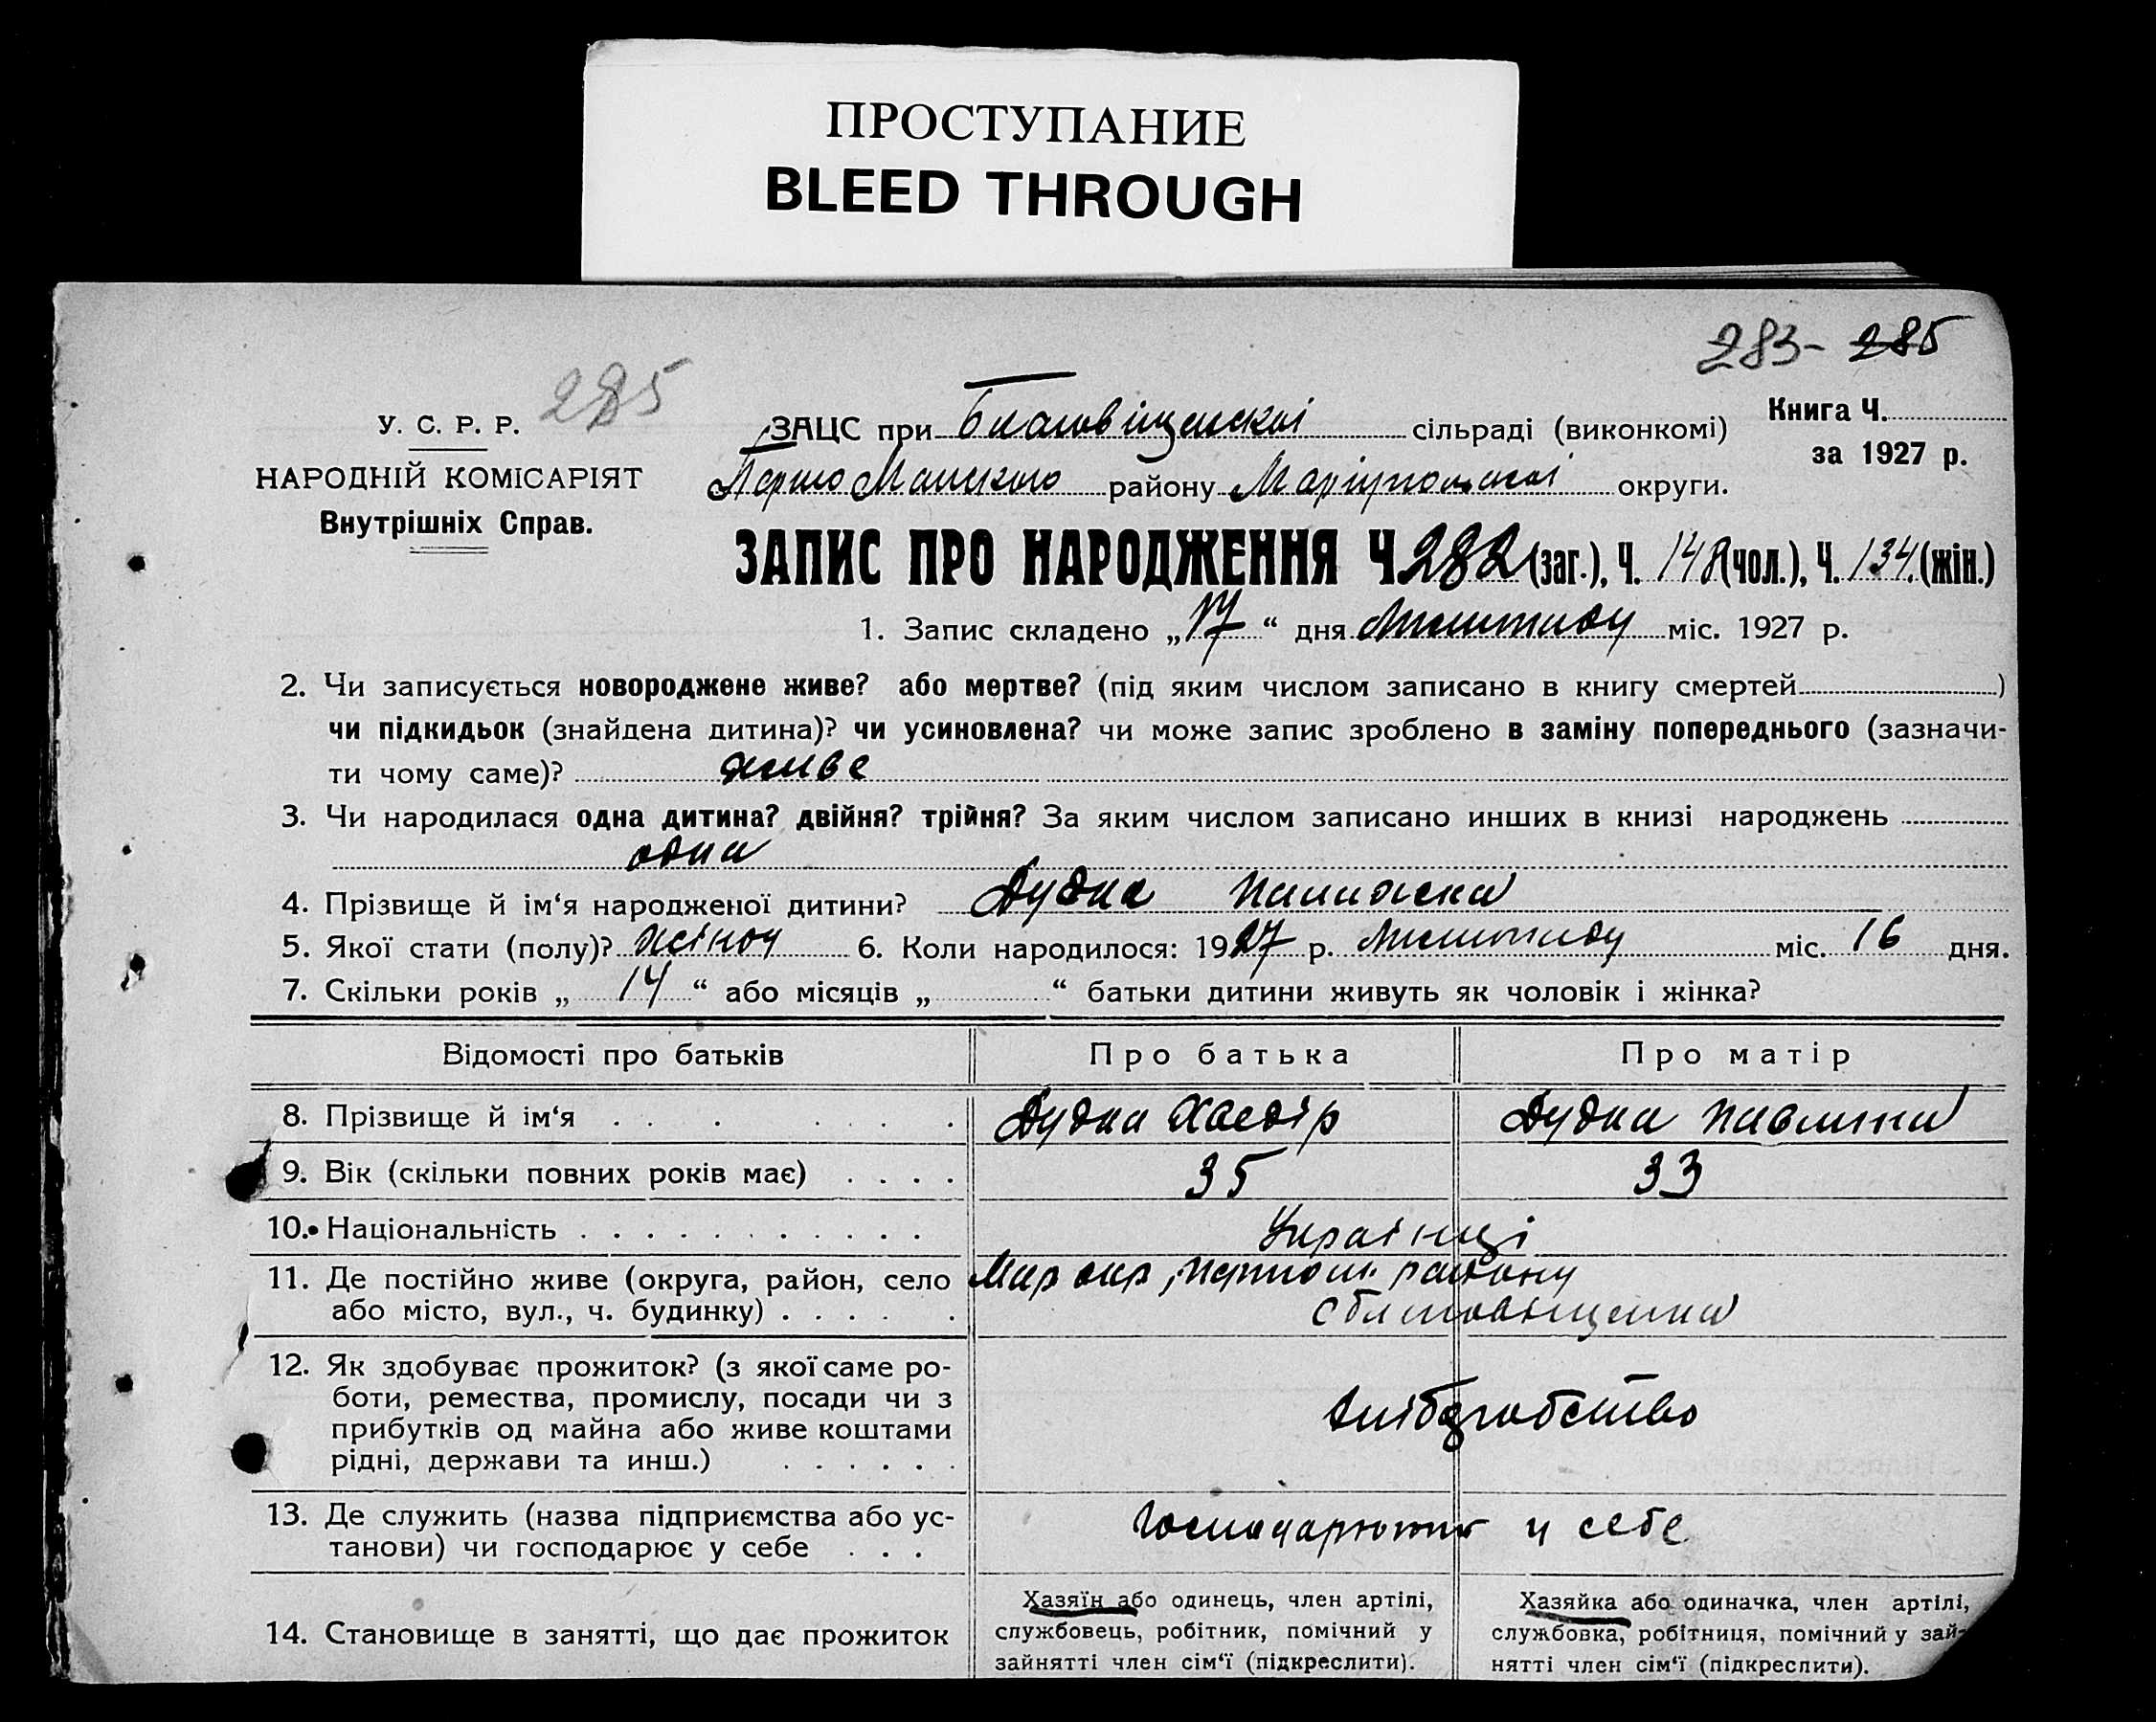 ПРОСТУПАНИЕ
BLEED THROUGH
283- 285
285
У. С. Р. Р.
НАРОДНІЙ КОМІСАРІЯТ
Внутрішніх Справ.
Книга Ч.
за 1927 р.
ЗАЦС при Благовіщенській сільраді (виконкомі)
району Маріупольскої округи.
ЗАПИС ПРО НАРОДЖЕННЯ Ч. 282 (заг.), Ч. 148 (чол.), Ч. 134 (жін.)
1. Запис складено „17“ дня Листопаду міс. 1927 р.
2. Чи записується новороджене живе? або мертве? (під яким числом записано в книгу смертей)
чи підкидьок (знайдена дитина)? чи усиновлена? чи може запис зроблено в заміну попереднього (зазначи-
ти чому саме)? живе
3. Чи народилася одна дитина? двійня? трійня? За яким числом записано инших в книзі народжень
одна
4. Прізвище й ім‘я народженої дитини? Дудка
5. Якої стати (полу)? жіноч 6. Коли народилося: 1927 р. Листопаду міс. 16 дня.
7. Скільки років „14“ або місяців „ “ батьки дитини живуть як чоловік і жінка?
Відомості про батьків Про батька Про матір
8. Прізвище й ім‘я Дудка Хведір Дудка Павлина
9. Вік (скільки повних років має) 35 33
10. Національність Українці
11. Де постійно живе (округа, район, село Мар окр, району
або місто, вул., ч. будинку) с Благовіщенка
12. Як здобуває прожиток? (з якої саме ро-
боти, ремества, промислу, посади чи з
прибутків од майна або живе коштами
рідні, держави та инш.) хліборобство
13. Де служить (назва підприємства або ус-
танови) чи господарює у себе Господарюють у себе
14. Становище в занятті, що дає прожиток
Хазяїн або одинець, член артілі,
службовець, робітник, помічний у
зайнятті член сім‘ї (підкреслити).
Хазяйка або одиначка, член артілі,
службовка, робітниця, помічний у зай-
нятті член сім‘ї (підкреслити).